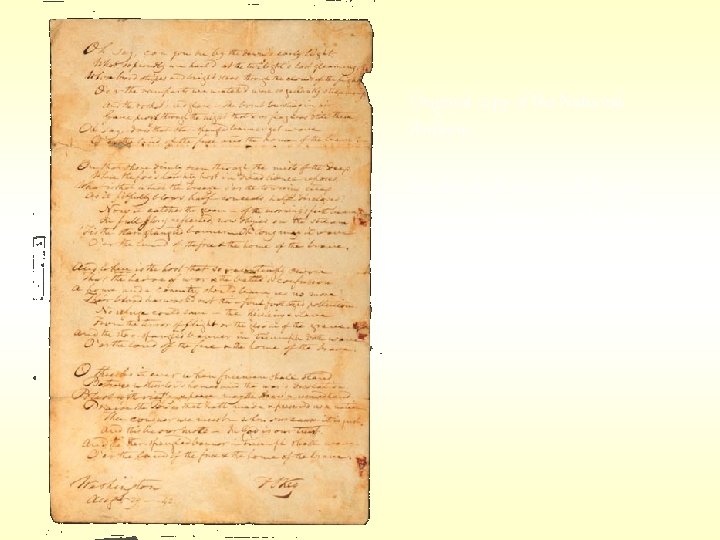 Oh say, can you see by the dawn's early light
What so proudly we hail'd at the twilight's last gleaming,
Whose broad stripes and bright stars through the
O'er the ramparts we watch'd were so gallantly
And the rocket's red glare — the bomb bursting in air
Gave proof through the night that our flag was still there
Oh say does that star spangled banner yet wave
O'er the land of the free and the home of the brave
On the shore dimly seen through the mists of the deep
Where the foe's haughty host in dread silence reposes
What is that which the breeze, o'er the
As it fitfully blows half conceals half discloses
Now it catches the gleam of the morning's first beam
In full glory reflected now shines on the stream
'Tis the star-spangled banner — O long may it wave
O'er the land of the free & the home of the brave.
And where is the
That the havoc of war & the battle's confusion
A home and a Country should leave us no more
Their blood has wash'd out their foul footsteps pollution
No refuge could save the hireling & slave
From the terror of flight or the gloom of the grave
And the star-spangled banner in triumph doth wave
O'er the land of the free & the home of the brave.
O thus be it ever when freemen shall stand
Between their lov'd home and the war's desolation
Blest with vict'ry & peace may the
Praise the power that hath made & preserv'd us a nation
Then conquer we must
And this be our motto — In God is our trust
And the star-spangled banner in triumph shall wave
O'er the land of the free & the home of the brave.
Washington
F S Key
Original copy of the National
Anthem